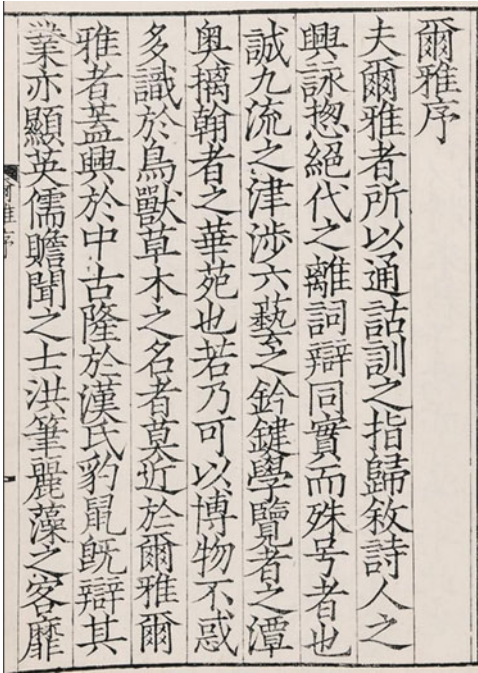 爾雅序
夫爾雅者所以通詁訓之指歸敘詩人之
興詠揔絕代之離詞辯同實而殊号者也
誠九流之津涉六藝之鈐鍵學覽者之潭
奥摛翰者之華苑也若乃可以博物不惑
多識於鳥獸草木之名者莫近於爾雅爾
雅者蓋興於中古隆於漢氏豹鼠旣辯其
業亦顯英儒贍聞之士洪筆麗藻之客靡
爾雅序